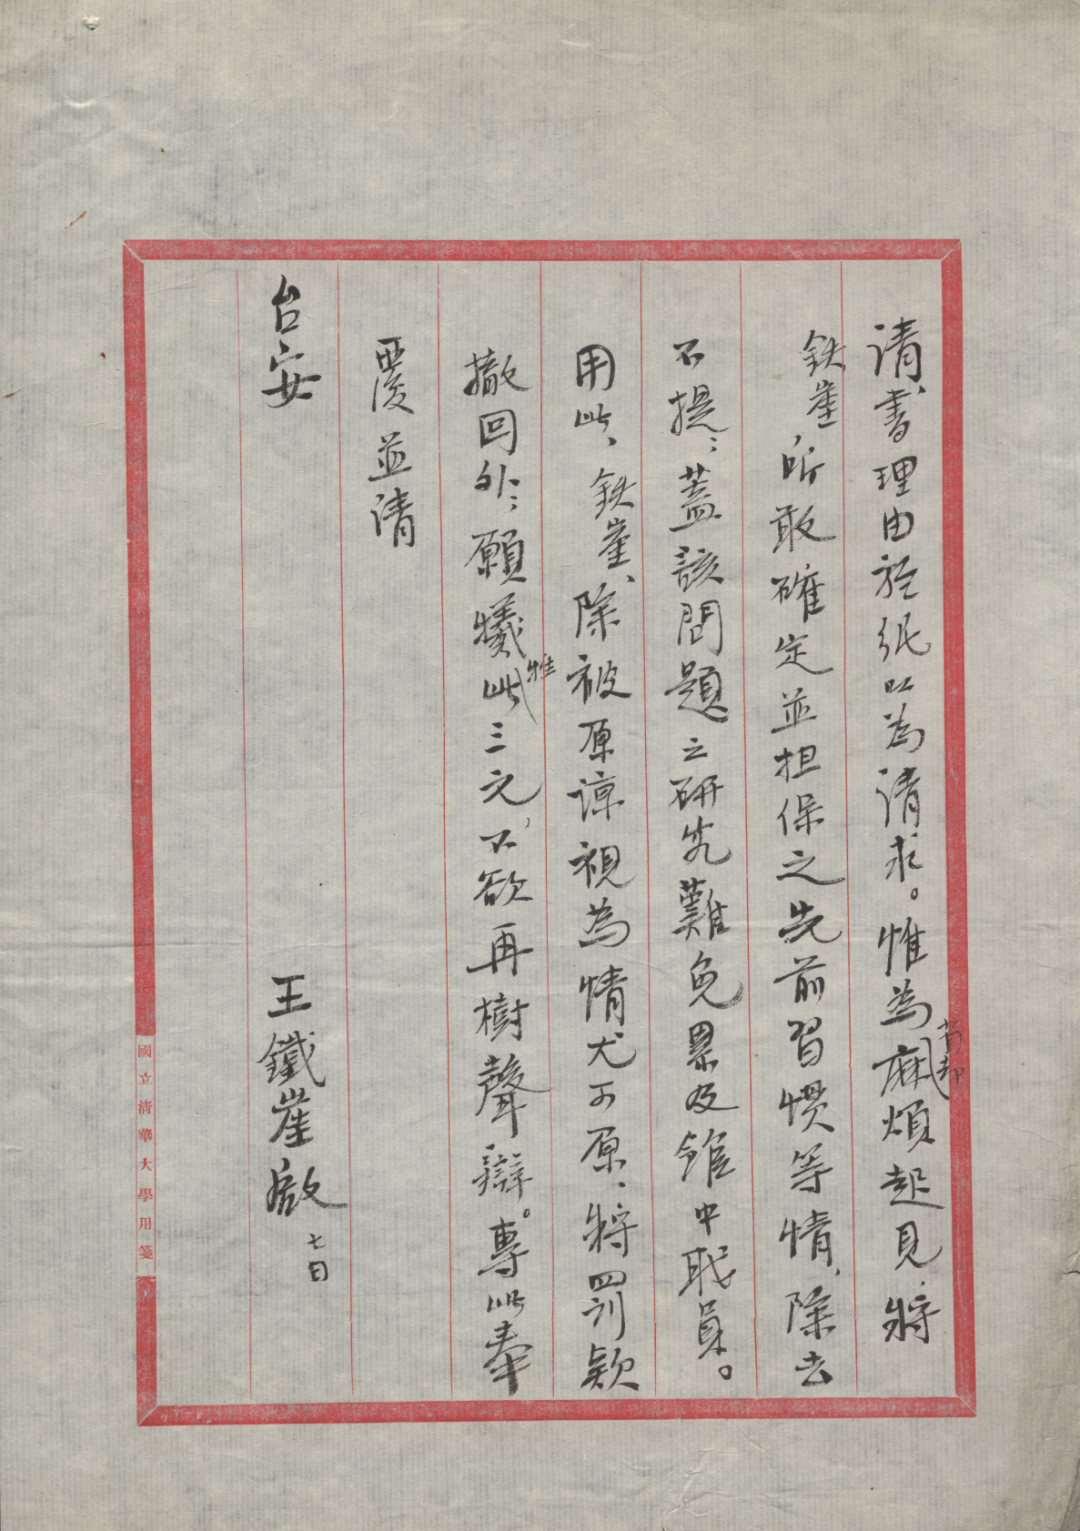 請、書理由於紙以為請求。惟為省却麻煩起見、將
鉄崖所敢確定並担保之先前習慣等情、除去
不提；蓋該問題之研究難免累及館中職員。
用此、鉄崖、除被原諒視為情尤可原、將四罰欵
撤回外；願犧牲此三元、不欲再樹聲辯。專此奉
覆並請
台安
王鐵崖啟
七日
國立清華大學用箋